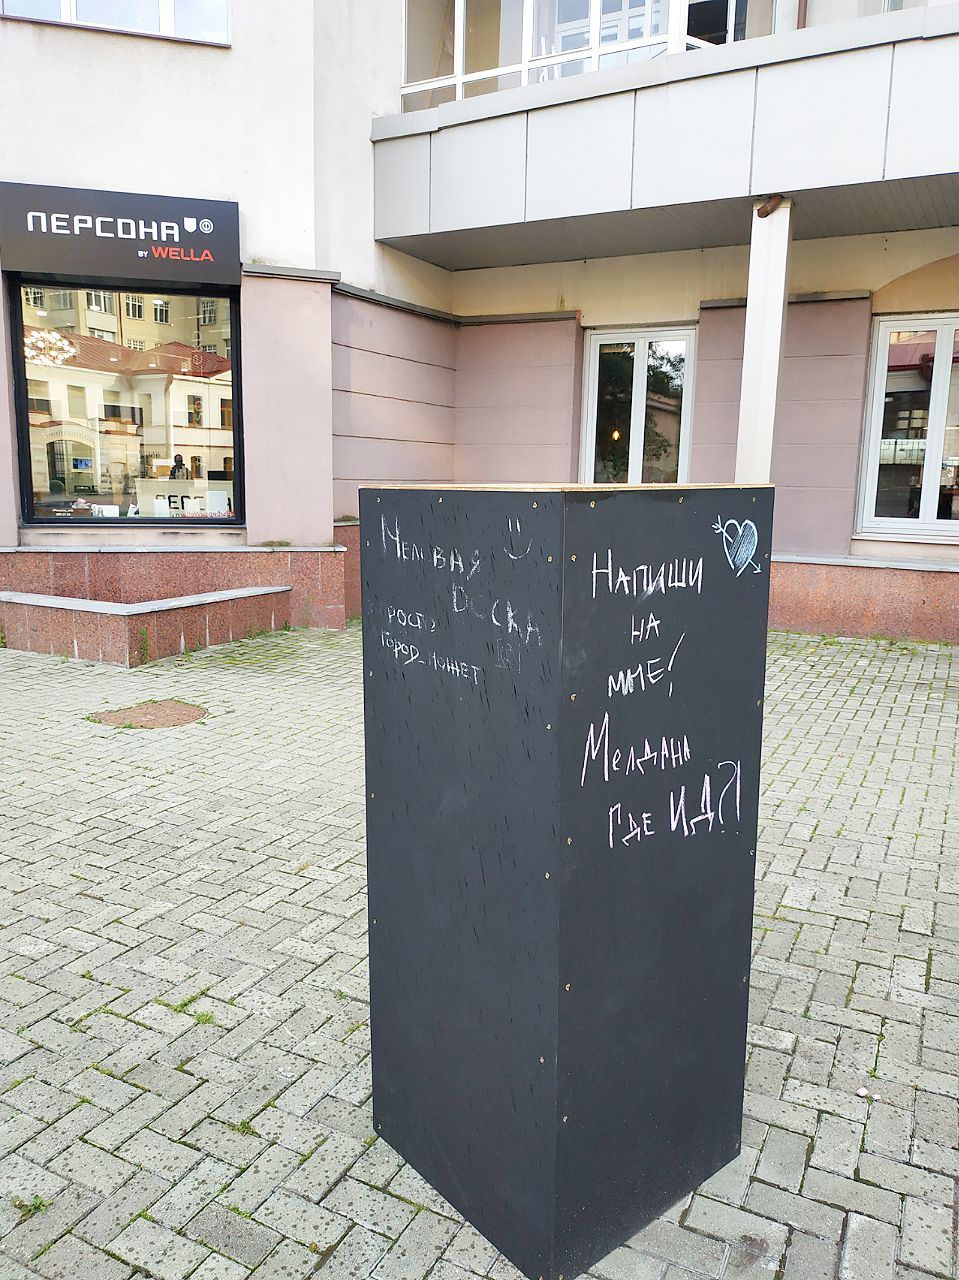 ПЕРСОНА
BY WELLA
Меловая
доска
Просто
город_может
Напиши
на
мне!
Мелдана
где ИД?!